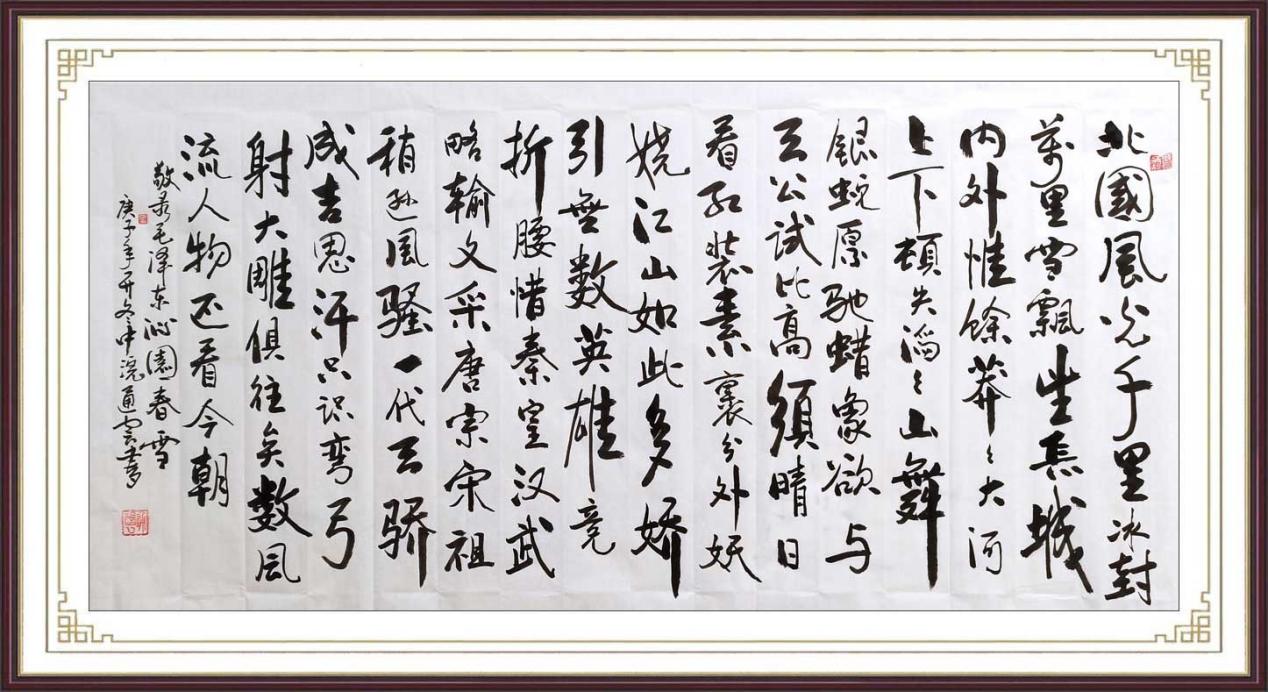 北國風光千里冰封
萬里雪飄望長城
内外惟餘莽々大河
上下頓失滔々山舞
銀蛇原馳蜡象欲与
天公試比高須晴日
看红装素裹分外妖
娆江山如此多娇
引無数英雄竞
折腰惜秦皇汉武
略输文采唐宗宋祖
稍逊風骚一代天骄
成吉思汗只识弯弓
射大雕俱往矣数風
流人物还看今朝
敬录毛泽东沁園春雪
庚子年冬中浣通雲书